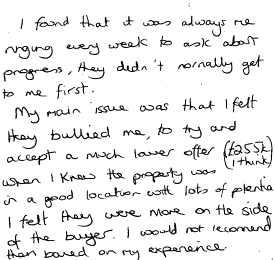 I found that it was always me
ringing every week to ask about
progress, they didn't normally get
to me first.
My main issue was that I felt
they bullied me, to try and
accept a much lower offer (£255k
I think)
when I knew the property was
in a good location with lots of potential
I felt they were more on the side
of the buyer. I would not recommend
them based on my experience.